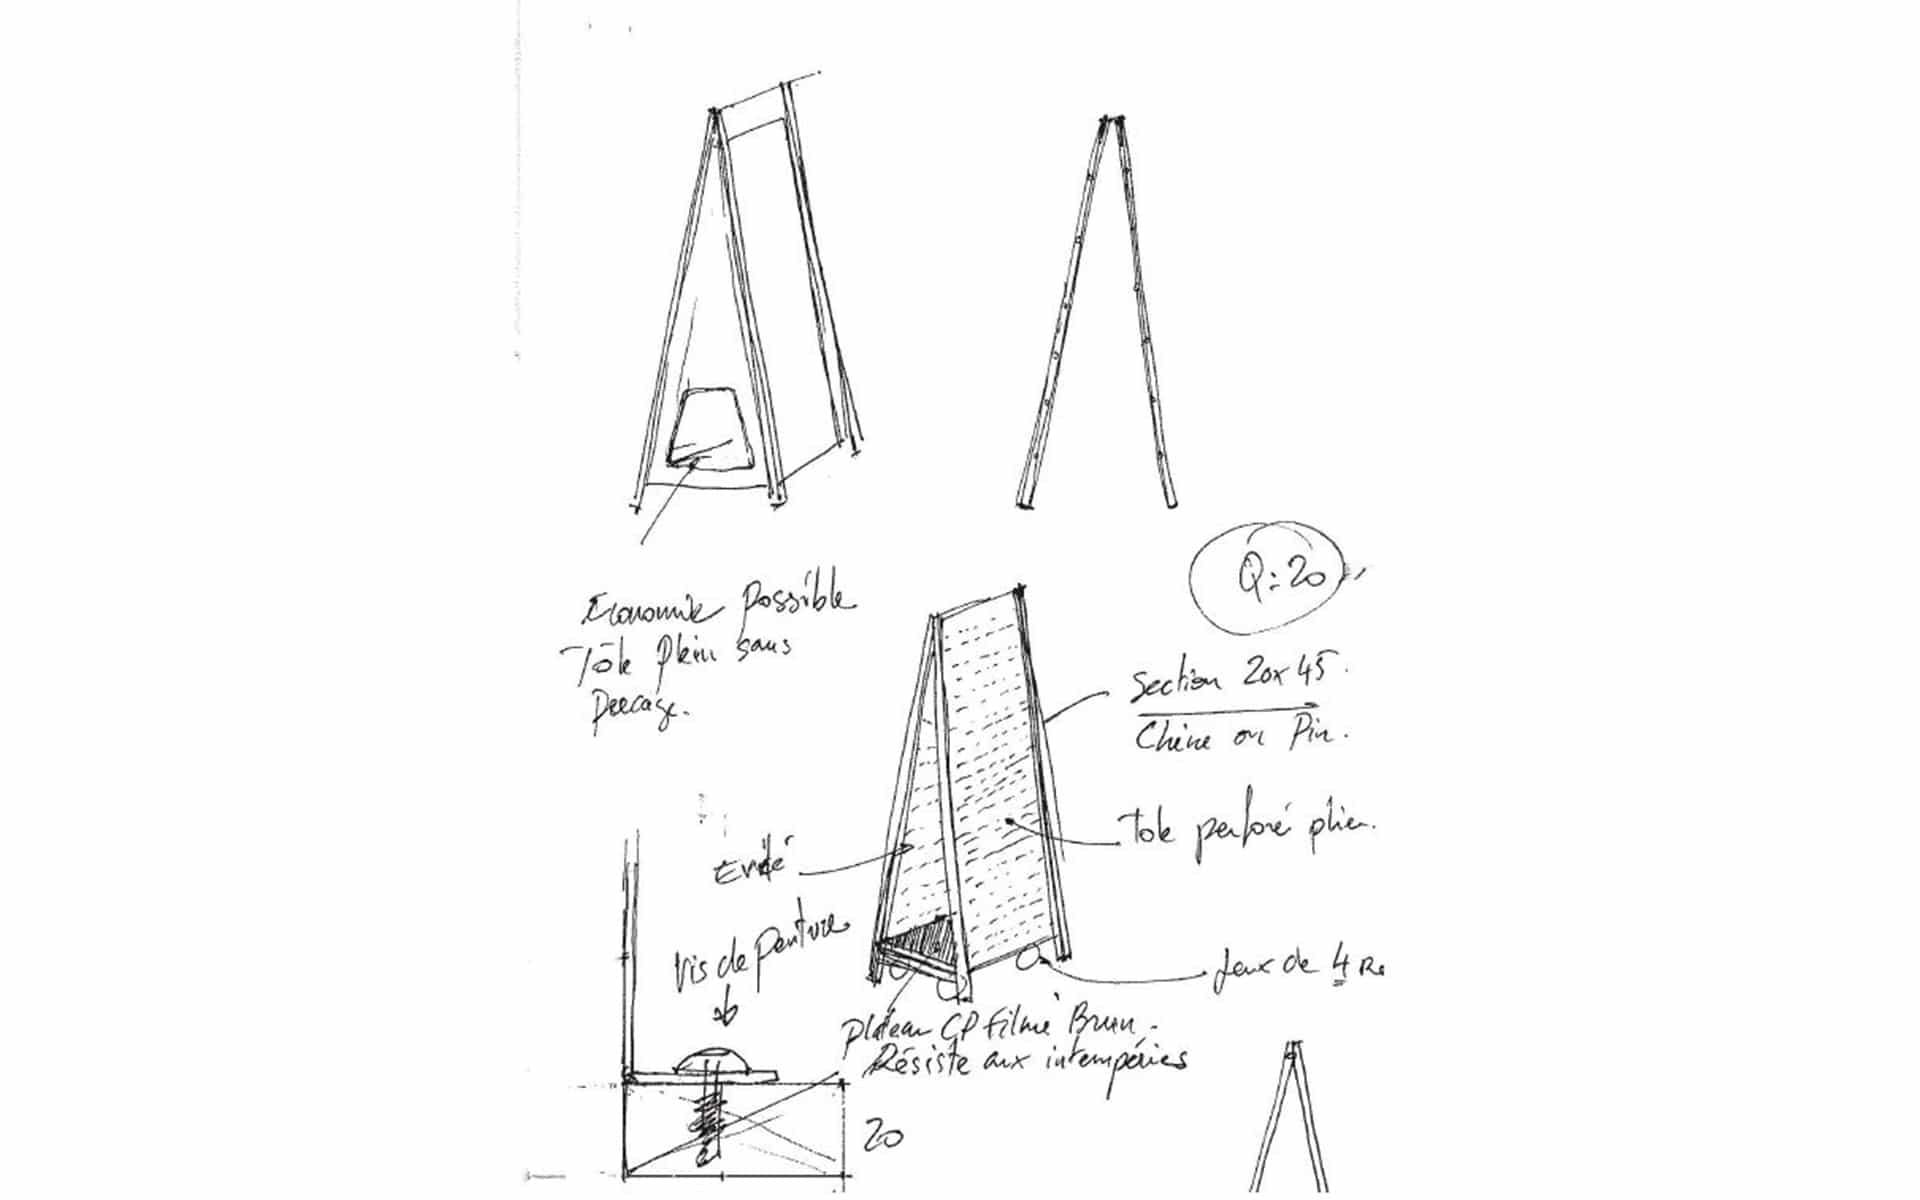 Q: 20
Economie possible
Tôle plein sans
percage.
Section 20x45.
Chêne ou Pin.
Tole perforé plier.
Evidé
Vis de penture
Jeux de 4 Ro
Plateau CP filmé Brun.
Résiste aux intempéries
20